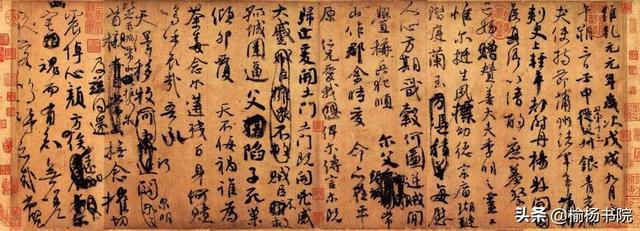 維乾元元年歲次戊戌九月庚
午朔三日壬申第十三叔銀青光祿
夫使持節蒲州諸軍事蒲州
刺史上輕車都尉丹楊縣開國
侯真卿以清酌庶羞祭于
亡姪贈贊善大夫季明之靈曰
惟爾挺生夙標幼德宗廟瑚璉
階庭蘭玉每慰
人心方期戩穀何圖逆賊間
釁稱兵犯順爾父竭誠常
山作郡余時受命亦在平
原仁兄愛我俾爾傳言爾既
歸止爰開土門土門既開凶威
大蹙賊臣不救
孤城圍逼父陷子死巢
傾卵覆天不悔禍誰為
荼毒念爾遘殘百身何贖
嗚呼哀哉吾承
天澤移牧河關泉明
首櫬及茲同還撫念摧切
震悼心顏方俟
魂而有知無嗟
久客嗚呼哀哉尚饗
头条 @榆杨书院